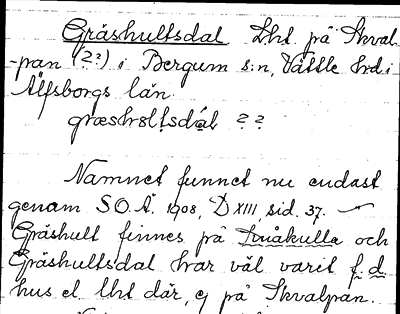 Gräshultsdal Lht på Skval-
-pan (??) i Bergum s:n, Vättle hrd i
Älfsborgs län.
græshɞltsdɑ́ɩ ??
Namnet funnet nu endast
genom S.O.Ä. 1908, D XIII, sid. 37.
Gräshult finnes på Småkulla och
Gräshultsdal har väl varit f.d.
hus el. lht där, ej på Skvalpan.